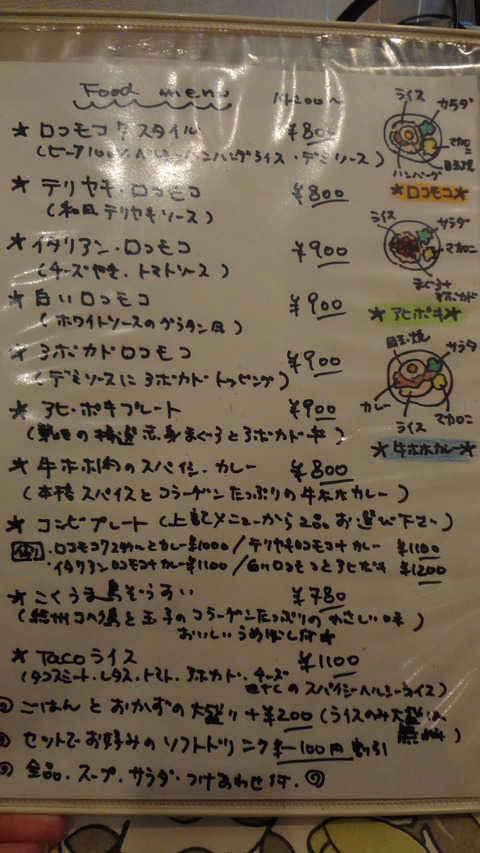 Food menu
★ロコモコ スタイル ¥800
・デミソース)
★テリヤキ・ロコモコ ¥800
(和風テリヤキソース)
★イタリアン・ロコモコ ¥900
(チーズやき、トマトソース)
★白いロコモコ ¥900
(ホワイトソースのグラタン風)
★アボカドロコモコ ¥900
(デミソースにアボカドトッピング)
★アヒ・ポキプレート ¥900
の特選赤身まぐろとアボカド丼)
★牛ホホ肉のスパイシーカレー ¥800
(本格スパイスとコラーゲンたっぷりの牛ホホカレー)
★コンビプレート(上記メニューから2品お選び下さい)
カレー¥1000/テリヤキロコモコ+カレー ¥1100
・イタリアンロコモコ+カレー¥1100/ ロコモコとアヒポキ ¥1200
★こくうま鳥ぞうすい ¥780
(紀州 鳥と玉子のコラーゲンたっぷりのやさしい味
おいしいうめぼし付★
★Tacoライス ¥1100
(タコスミート・レタス・トマト・アボカド・チーズ
etcのスパイシーヘルシーライス)
ごはんとおかずの大盛り+¥200(ライスのみ大盛は
無料)
セットでお好みのソフトドリンク¥-100円割引
全品・スープ・サラダ・つけあわせ付・
ライス
サラダ
マカロニ
目玉焼
ハンバーグ
★ロコモコ★
ライス
サラダ
マカロニ
まぐろ+
アボカド
★アヒポキ★
目玉焼
サラダ
カレー
ライス
マカロニ
★牛ホホカレー★